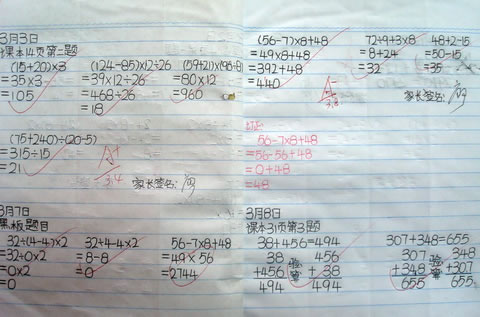 3月3日
课本14页第二题
(15+20)×3 (124-85)×12÷26 (59+21)×(96-8
=35×3 =39×12÷26 =80×12
=105 =468÷26 =960
=18
(75+240)÷(20-5)
=315÷15
=21
3.4
家长签名:
3月7日
黑板题目
32÷(4-4)×2 32÷4-4×2 56-7×8+48
=32÷0×2 =8-8 =49×56
=0×2 =0 =2744
=0
(56-7)×8+48 72÷9+3×8 48+2-15
=49×8+48 =8+24 =50-15
=392+48 =32 =35
=440
3.8
家长签名:
改正:
56-7×8+48
=56-56+48
=0+48
=48
3月8日
课本31页第3题
38+456=494 307+348=655
38 验算 456 307 验算 348
+456 + 38 +348 +307
494 494 655 655